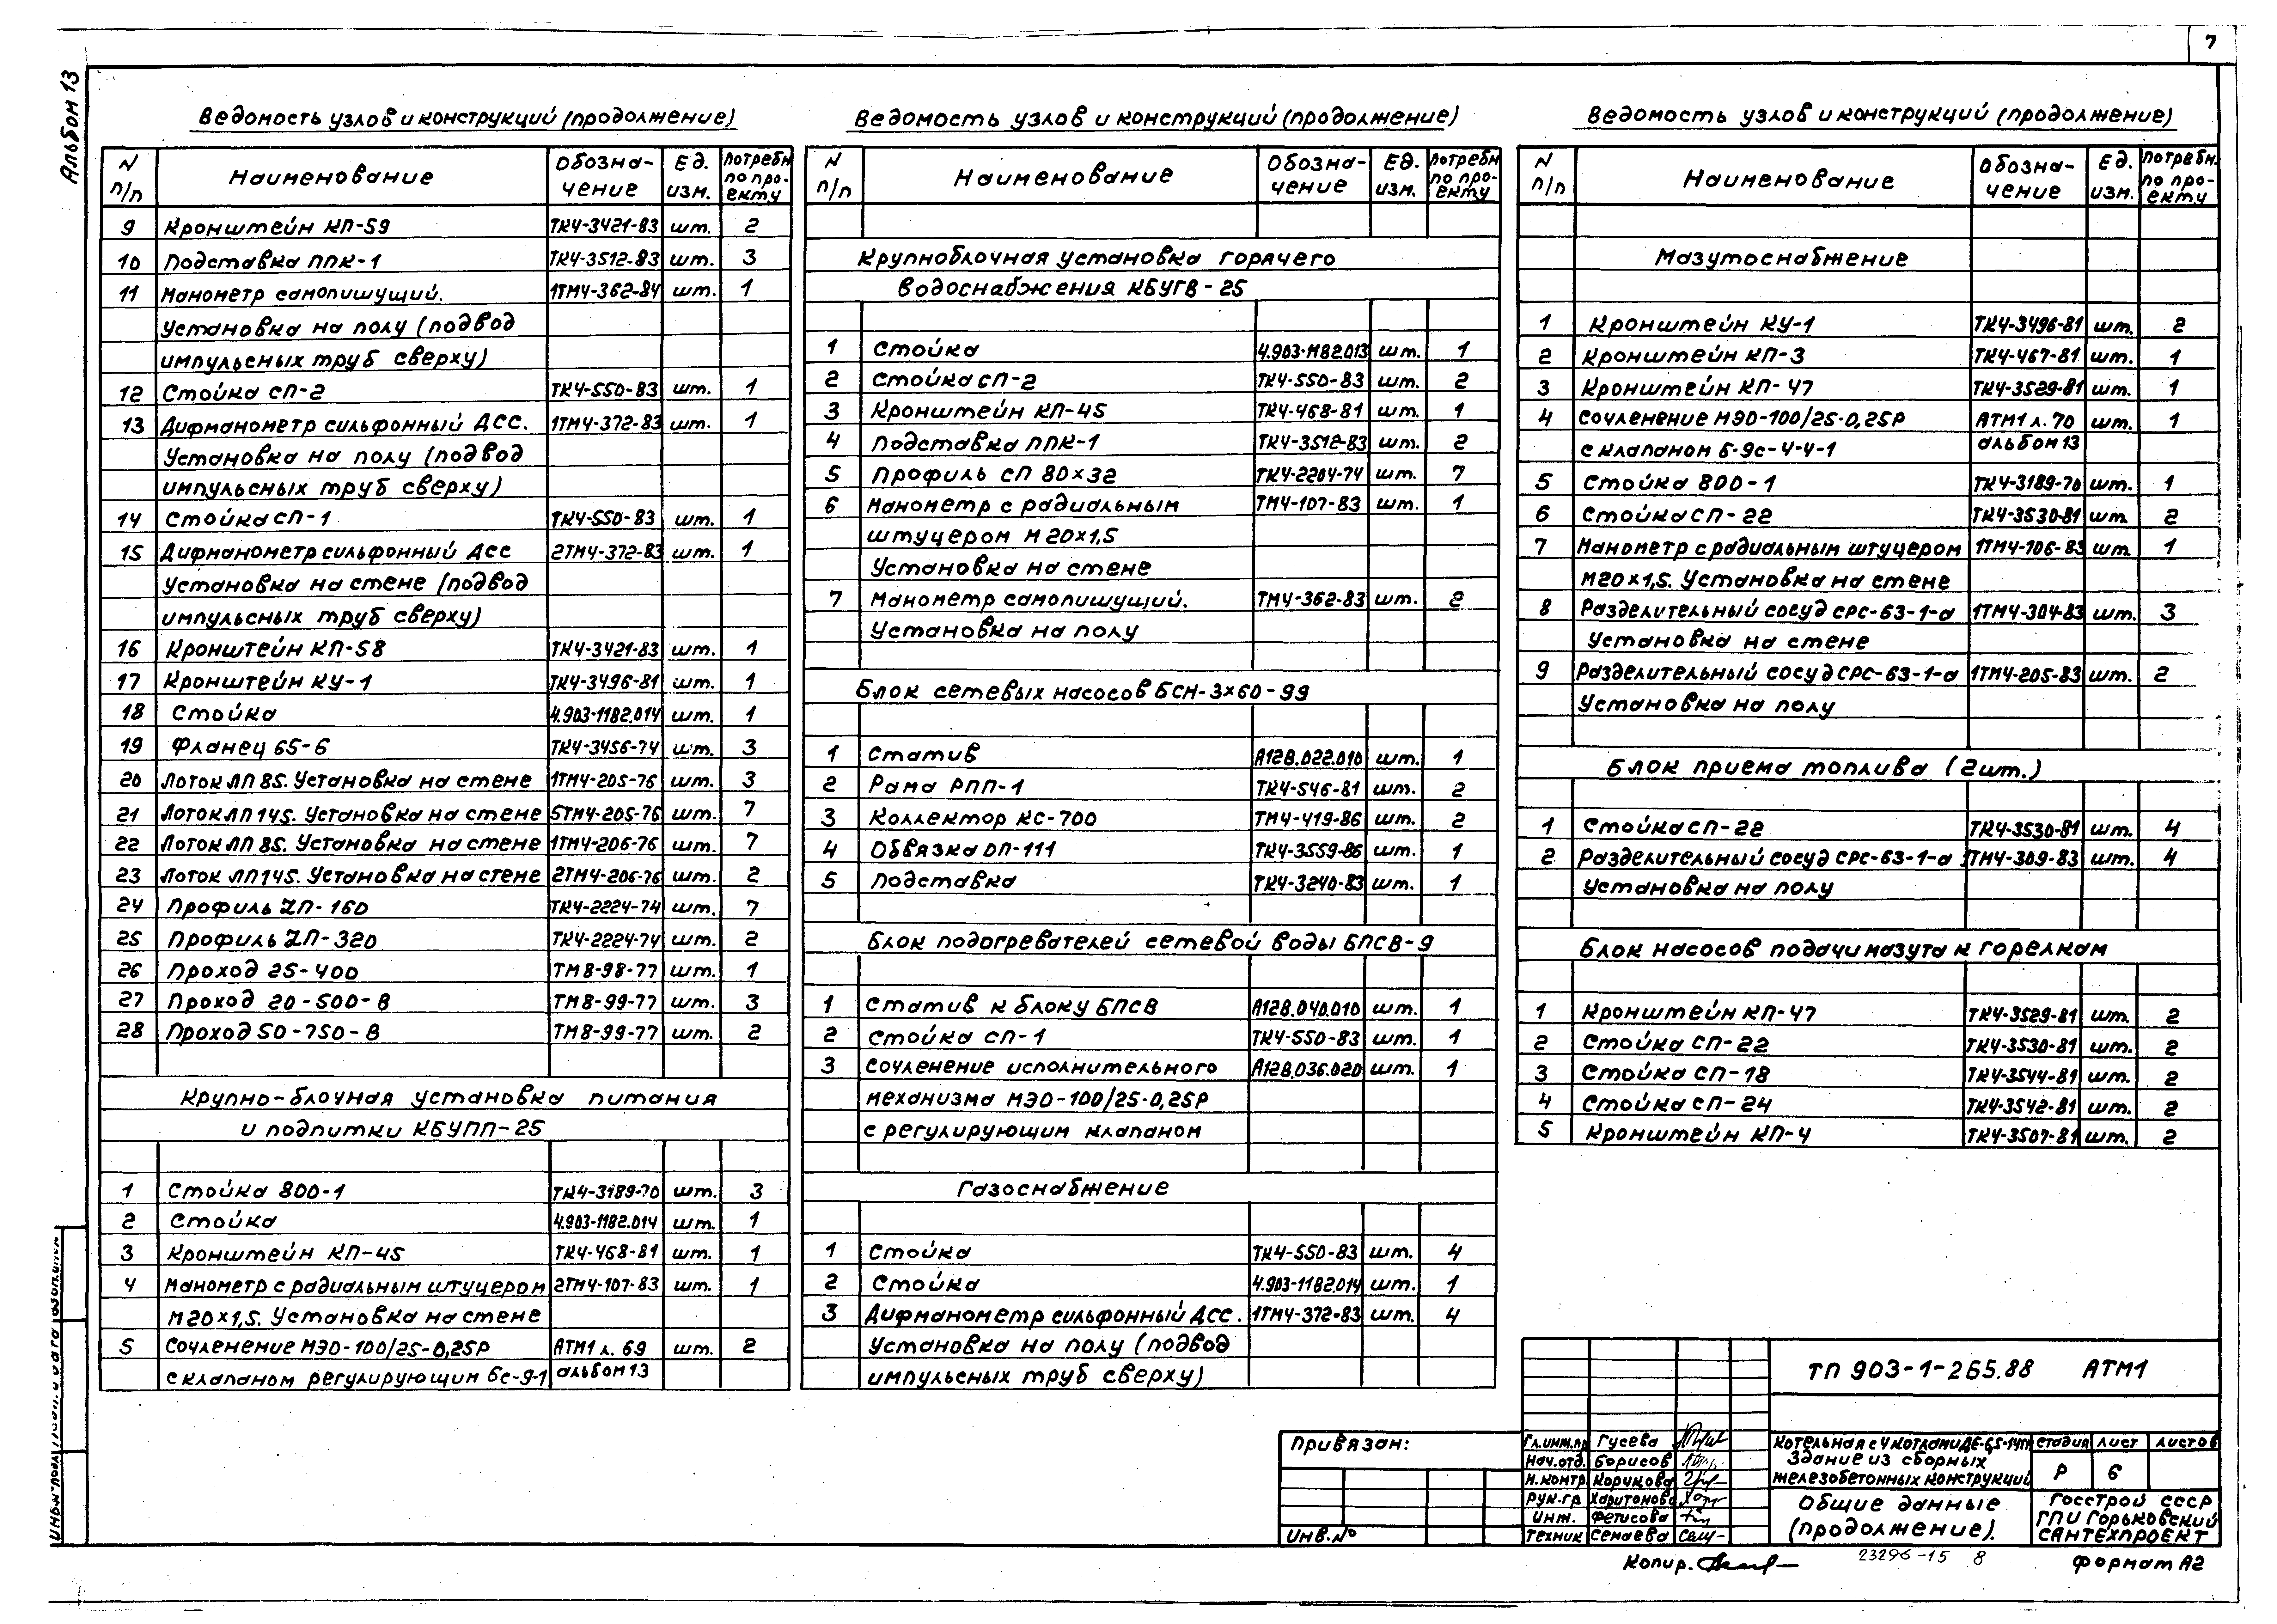 7
Альбом 13
Ведомость узлов и конструкций (продолжение)
N п/п Наименование Обозначение Ед. изм. Потребн. по проекту
9 Кронштейн КП-59 ТК4-3421-83 шт. 2
10 Подставка ППК-1 ТК4-3512-83 шт. 3
11 Манометр самопишущий. 1ТМ4-362-84 шт. 1
Установка на полу (подвод
импульсных труб сверху)
12 Стойка СП-2 ТК4-550-83 шт. 1
13 Дифманометр сильфонный ДСС. 1ТМ4-372-83 шт. 1
Установка на полу (подвод
импульсных труб сверху)
14 Стойка СП-1 ТК4-550-83 шт. 1
15 Дифманометр сильфонный ДСС 2ТМ4-372-83 шт. 1
Установка на стене (подвод
импульсных труб сверху)
16 Кронштейн КП-58 ТК4-3421-83 шт. 1
17 Кронштейн КУ-1 ТК4-3496-81 шт. 1
18 Стойка 4.903-1182.014 шт. 1
19 Фланец 65-6 ТК4-3456-74 шт. 3
20 Лоток ЛП 85. Установка на стене 1ТМ4-205-76 шт. 3
21 Лоток ЛП 145. Установка на стене 5ТМ4-205-76 шт. 7
22 Лоток ЛП 85. Установка на стене 1ТМ4-206-76 шт. 7
23 Лоток ЛП 145. Установка на стене 2ТМ4-206-76 шт. 2
24 Профиль ZП-160 ТК4-2224-74 шт. 7
25 Профиль ZП-320 ТК4-2224-74 шт. 2
26 Проход 25-400 ТМ8-98-77 шт. 1
27 Проход 20-500-В ТМ8-99-77 шт. 3
28 Проход 50-750-В ТМ8-99-77 шт. 2
Крупно-блочная установка питания
и подпитки КБУПП-25
1 Стойка 800-1 ТК4-3189-70 шт. 3
2 Стойка 4.903-1182.014 шт. 1
3 Кронштейн КП-45 ТК4-468-81 шт. 1
4 Манометр с радиальным штуцером 2ТМ4-107-83 шт. 1
М20×1,5. Установка на стене
5 Сочленение МЭО-100/25-0,25Р АТМ1 л. 69 шт. 2
с клапаном регулирующим 6с-9-1 альбом 13
Ведомость узлов и конструкций (продолжение)
N п/п Наименование Обозначение Ед. изм. Потребн. по проекту
Крупноблочная установка горячего
водоснабжения КБУГВ-25
1 Стойка 4.903-1182.013 шт. 1
2 Стойка СП-2 ТК4-550-83 шт. 2
3 Кронштейн КП-45 ТК4-468-81 шт. 1
4 Подставка ППК-1 ТК4-3512-83 шт. 2
5 Профиль СП 80×32 ТК4-2204-74 шт. 7
6 Манометр с радиальным ТМ4-107-83 шт. 1
штуцером М20×1,5
Установка на стене
7 Манометр самопишущий. ТМ4-362-83 шт. 2
Установка на полу
Блок сетевых насосов БСН-3×60-99
1 Статив А12В.022.010 шт. 1
2 Рама РПП-1 ТК4-546-81 шт. 2
3 Коллектор КС-700 ТМ4-419-86 шт. 2
4 Обвязка ОП-111 ТК4-3559-86 шт. 1
5 Подставка ТК4-3240-83 шт. 1
Блок подогревателей сетевой воды БПСВ-9
1 Статив к блоку БПСВ А12В.040.010 шт. 1
2 Стойка СП-1 ТК4-550-83 шт. 1
3 Сочленение исполнительного А12В.036.020 шт. 1
механизма МЭО-100/25-0,25Р
с регулирующим клапаном
Газоснабжение
1 Стойка ТК4-550-83 шт. 4
2 Стойка 4.903-1182.014 шт. 1
3 Дифманометр сильфонный ДСС. 1ТМ4-372-83 шт. 4
Установка на полу (подвод
импульсных труб сверху)
Ведомость узлов и конструкций (продолжение)
N п/п Наименование Обозначение Ед. изм. Потребн. по проекту
Мазутоснабжение
1 Кронштейн КУ-1 ТК4-3496-81 шт. 2
2 Кронштейн КП-3 ТК4-467-81 шт. 1
3 Кронштейн КП-47 ТК4-3529-81 шт. 1
4 Сочленение МЭО-100/25-0,25Р АТМ1 л. 70 шт. 1
с клапаном Б-9с-4-4-1 альбом 13
5 Стойка 800-1 ТК4-3189-70 шт. 1
6 Стойка СП-22 ТК4-3530-81 шт. 2
7 Манометр с радиальным штуцером 1ТМ4-106-83 шт. 1
М20×1,5. Установка на стене
8 Разделительный сосуд СРС-63-1-а 1ТМ4-304-83 шт. 3
Установка на стене
9 Разделительный сосуд СРС-63-1-а 1ТМ4-205-83 шт. 2
Установка на полу
Блок приема топлива (2шт.)
1 Стойка СП-22 ТК4-3530-81 шт. 4
2 Разделительный сосуд СРС-63-1-а 1ТМ4-309-83 шт. 4
Установка на полу
Блок насосов подачи мазута к горелкам
1 Кронштейн КП-47 ТК4-3529-81 шт. 2
2 Стойка СП-22 ТК4-3530-81 шт. 2
3 Стойка СП-18 ТК4-3544-81 шт. 2
4 Стойка СП-24 ТК4-3542-81 шт. 2
5 Кронштейн КП-4 ТК4-3507-81 шт. 2
Привязан:
Инв.№
ТП 903-1-265.88 АТМ1
Гл.инж.пр Гусева
Нач.отд. Борисов
Н.контр. Корчкова
Рук.гр Харитонова
Инж. Фетисова
Техник Семаева
Котельная с 4 котлами ДЕ-6,5-14ГМ
Здание из сборных
железобетонных конструкций
стадия лист листов
Р 6
Общие данные
(продолжение).
Госстрой СССР
ГПИ Горьковский
САНТЕХПРОЕКТ
Копир.
23296-15 8
Формат А2